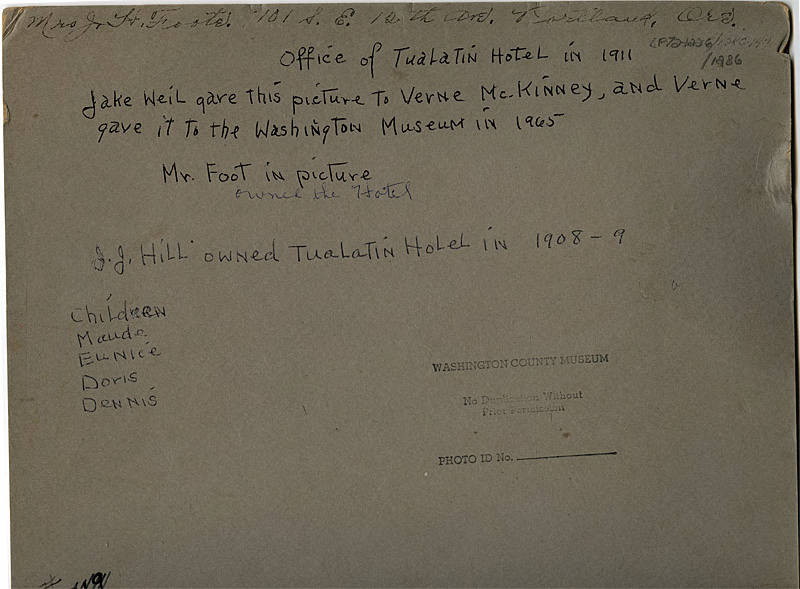 Mrs J. W. Foote. 701 S. E. 12th Ave. Portland, Ore.
Office of Tualatin Hotel in 1911
/1986
Jake Weil gave this picture to Verne McKinney, and Verne
gave it to the Washington Museum in 1965
Mr. Foot in picture
owned the Hotel
J.J. Hill owned Tualatin Hotel in 1908-9
Children
Maude
Eunice
Doris
Dennis
WASHINGTON COUNTY MUSEUM
No Duplication Without
Prior Permission
PHOTO ID No.